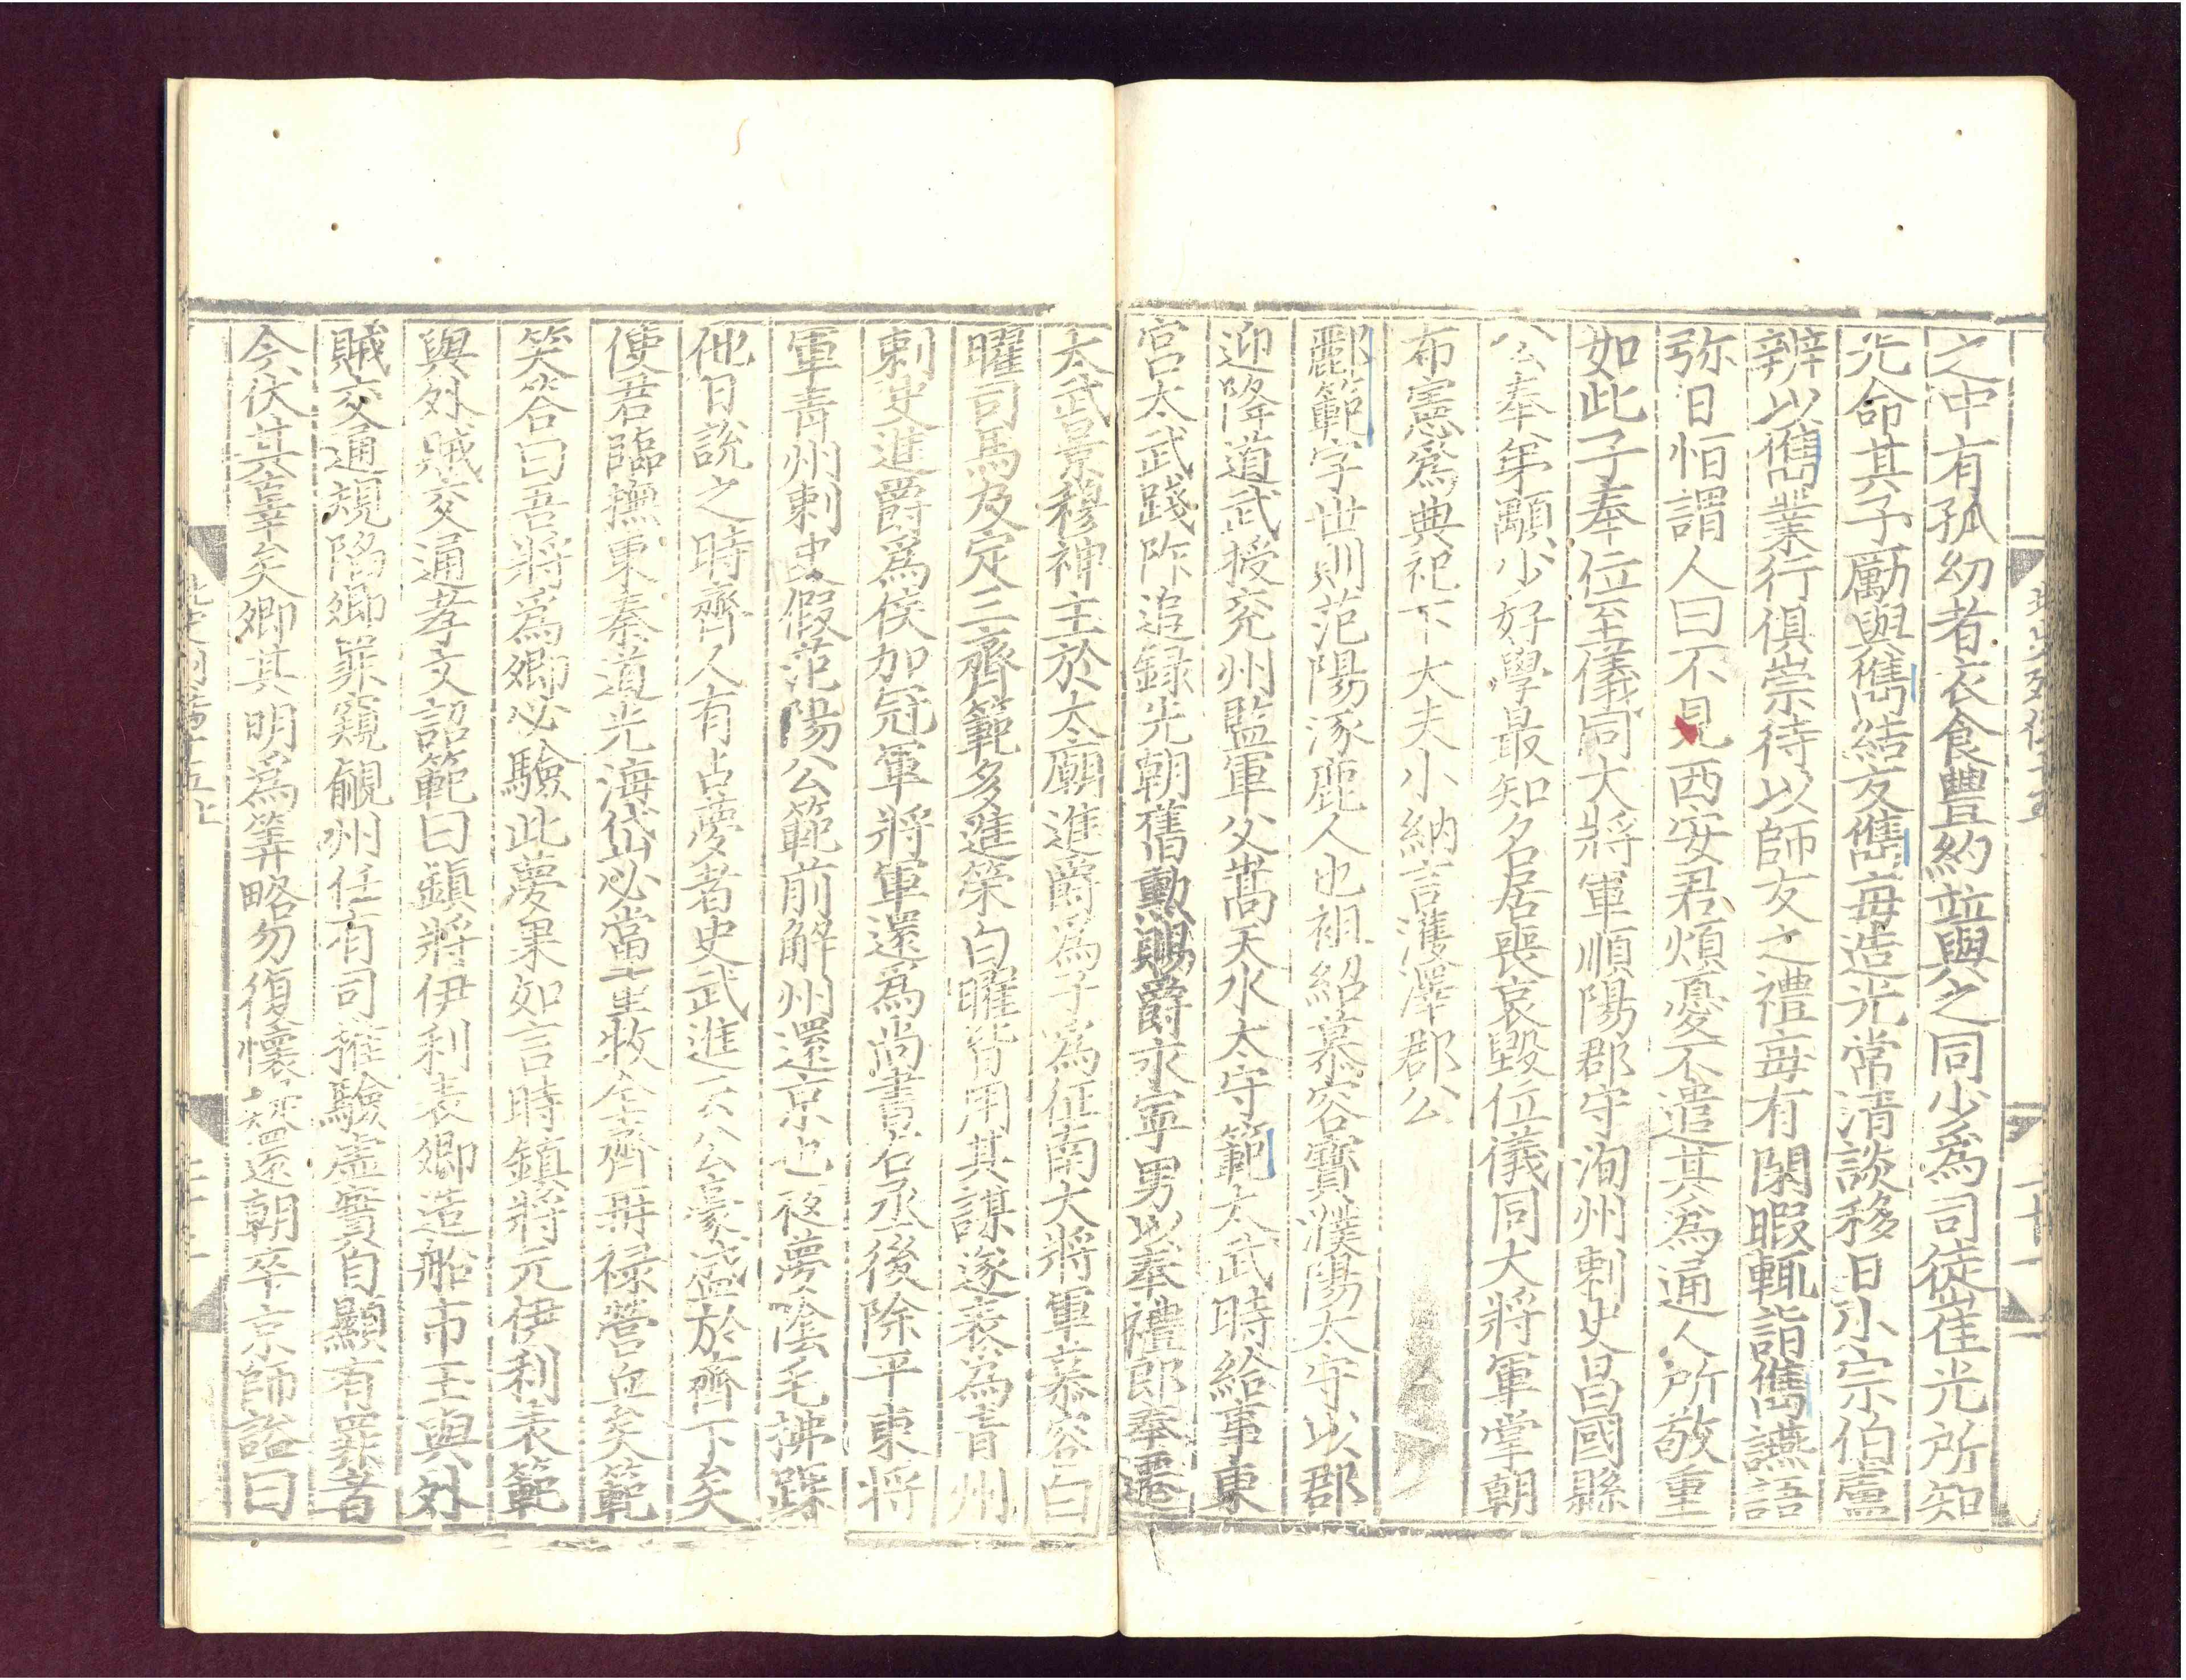 之中有孤幼者衣食豐約並與之同少爲司徒崔光所知
光命其子勵與儁結友儁每造光常清談移日小宗伯盧
辨以儁業行俱崇待以師友之禮每有閑暇輒詣儁讌語
弥日恒謂人曰不見西安君煩憂不遣其爲通人所敬重
如此子奉位至儀同大將軍順陽郡守洵州刺史昌國縣
公奉弟顒少好學最知名居喪哀毀位儀同大將軍掌朝
布憲爲典祀下大夫小納言濩澤郡公
酈範字世則范陽涿鹿人也祖紹慕容寶濮陽太守以郡
迎降道武授兖州監軍父嵩天水太守範太武時給事東
宫太武踐阼追録先朝舊勲賜爵永寧男以奉禮郎奉遷
太武景穆神主於太廟進爵爲子爲征南大將軍慕容白
曜司馬及定三齊範多進策白曜皆用其謀遂表爲青州
刺史進爵爲侯加冠軍將軍還爲尚書右丞後除平東將
軍青州刺史假范陽公範前解州還京也夜夢陰毛拂踝
他日說之時齊人有占夢者史武進云公豪盛於齊下矣
使君臨撫東秦道光海岱必當重牧全齊再禄營丘矣範
笑答曰吾將爲卿必驗此夢果如言時鎮將元伊利表範
與外賊交通孝文詔範曰鎮將伊利表卿造船市玉與外
賊交通規陷卿罪窺覦州任有司推驗虛實自顯有罪者
今伏其辜矣卿其明爲筭略勿復懷疑還朝卒京師謚曰